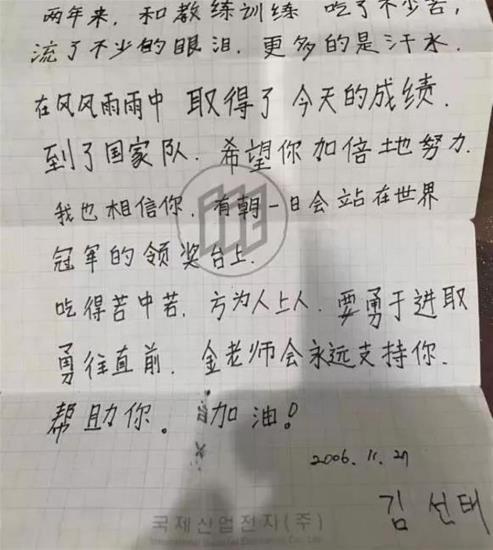 两年来，和教练训练 吃了不少苦，
流了不少的眼泪，更多的是汗水．
在风风雨雨中 取得了 今天的成绩．
到了国家队．希望你 加倍地努力．
我也相信你．有朝一日会站在世界
冠军的领奖台上．
吃得苦中苦．方为人上人．要勇于进取
勇往直前．金老师会永远支持你．
帮助你。加油！
2006. 11. 27
김 선태
국제산업전자(주)